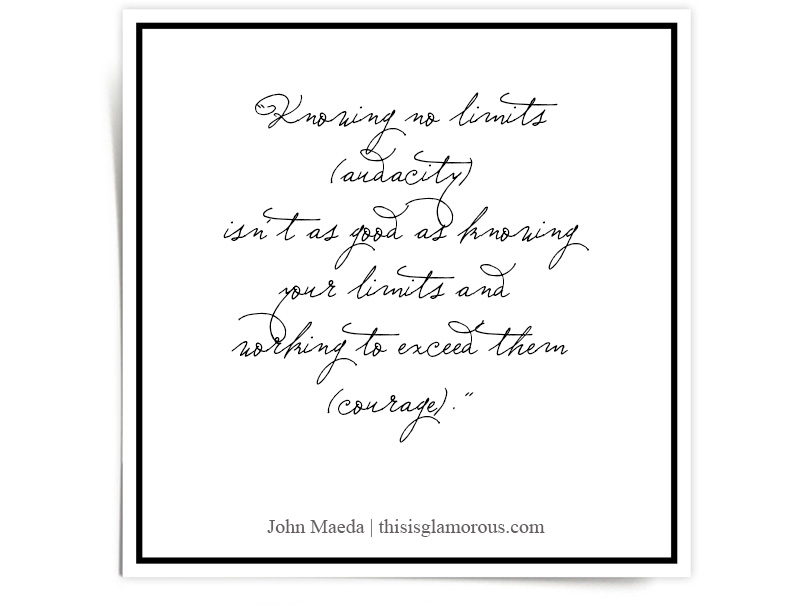 "Knowing no limits
(audacity)
isn't as good as knowing
your limits and
working to exceed them
(courage)."
John Maeda | thisisglamorous.com